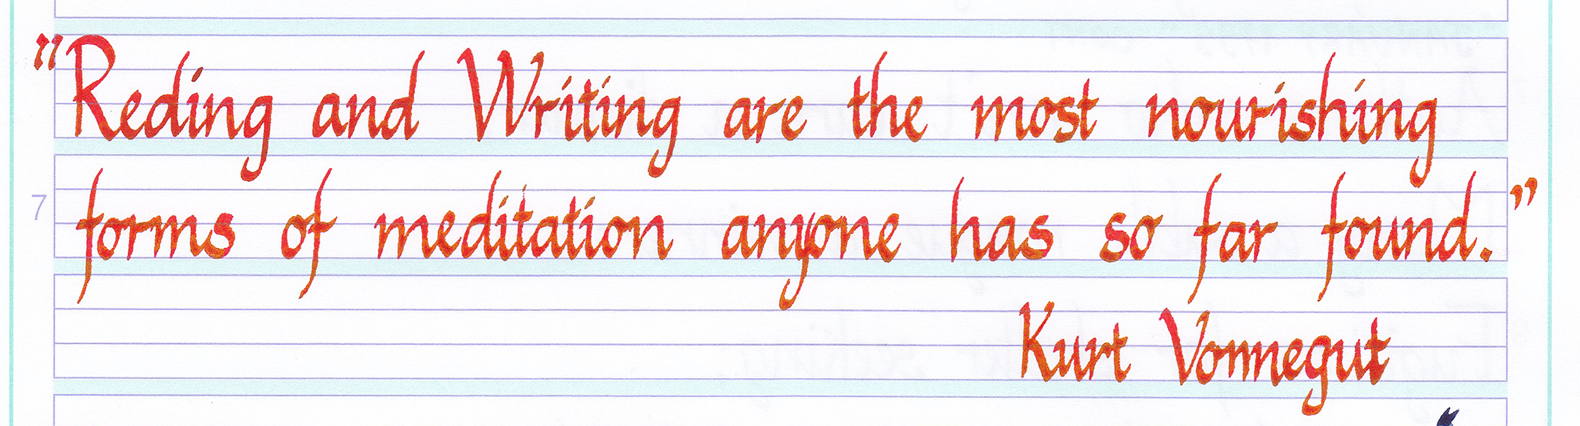 "Reding and Writing are the most nourishing
7
forms of meditation anyone has so far found."
Kurt Vonnegut